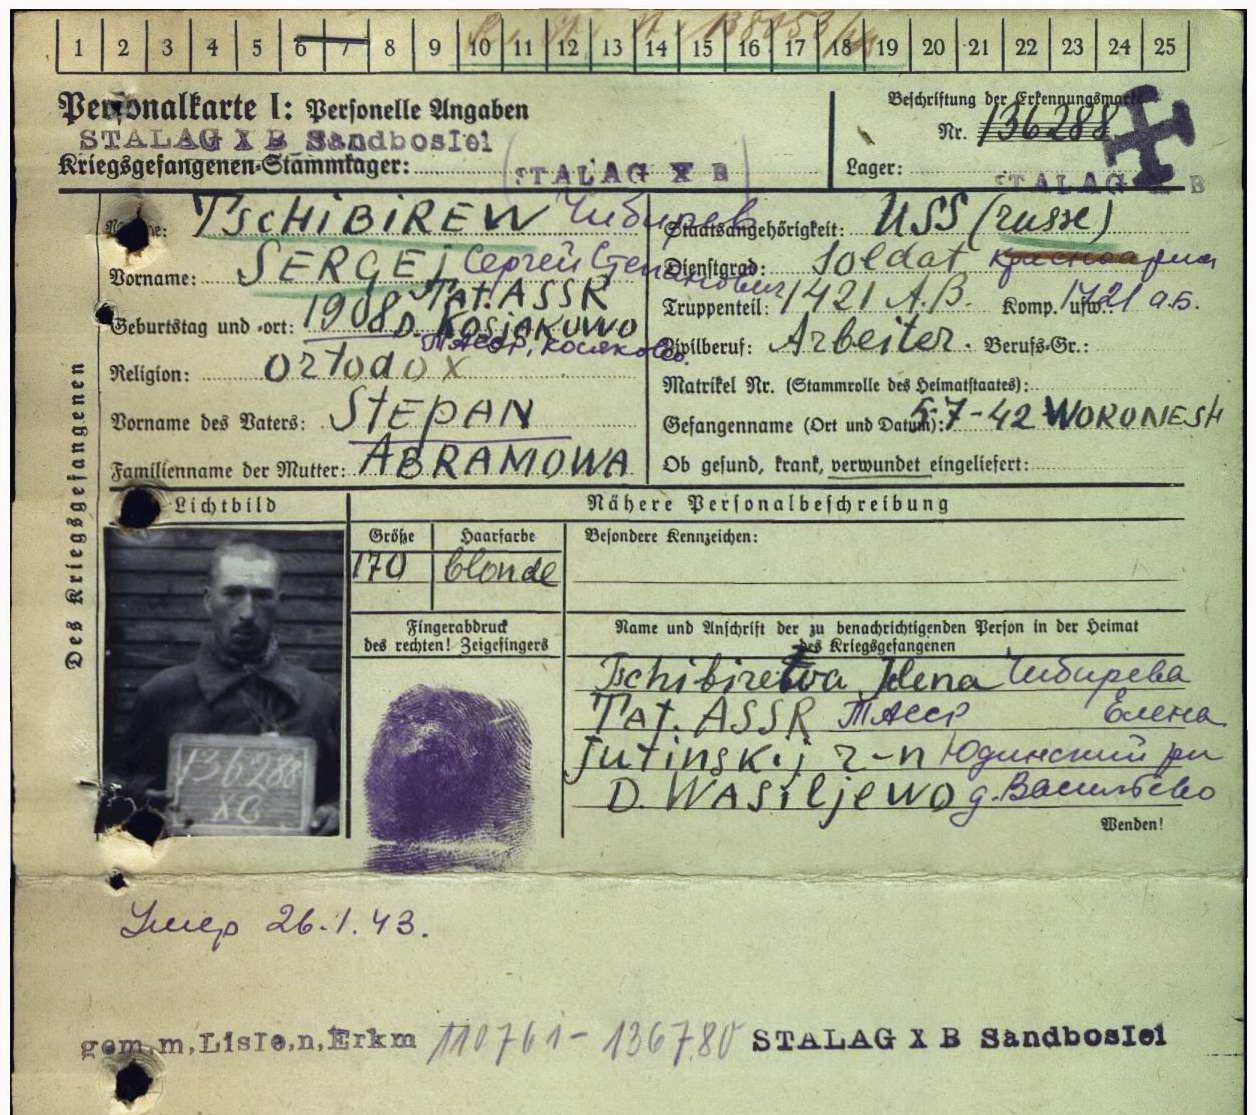 1 2 3 4 5 6 7 8 9 10 11 12 13 14 15 16 17 18 19 20 21 22 23 24 25
Personalkarte I: Personelle Angaben
STALAG X B Sandbostel
Kriegsgefangenen-Stammlager: STALAG X B
Beschriftung der Erkennungsmarke
Nr. 136288
Lager: STALAG X B
Des Kriegsgefangenen
Name: TSCHIBIREW Чибирев
Vorname: SERGEJ Сергей Степанович
Geburtstag und -ort: 1908 Tat. ASSR
D. KOSJAKOWO
ТАССР, Косяково
Religion: ortodox
Vorname des Vaters: STEPAN
Familienname der Mutter: ABRAMOWA
Staatsangehörigkeit: USS (russe)
Dienstgrad: Soldat
Truppenteil: 1421 A.B. Komp. usw.: 1421 а.б.
Zivilberuf: Arbeiter. Berufs-Gr.:
Matrikel Nr. (Stammrolle des Heimatstaates):
Gefangenname (Ort und Datum): 5-7-42 WORONESH
Ob gesund, krank, verwundet eingeliefert:
Lichtbild
136288
XB
Nähere Personalbeschreibung
Größe Haarfarbe
170 blonde
Besondere Kennzeichen:
Fingerabdruck
des rechten! Zeigefingers
Name und Anschrift der zu benachrichtigenden Person in der Heimat
des Kriegsgefangenen
Tschibirewa Jelena Чибирева
Tat. ASSR ТАССР Елена
Jutinskij r-n Юдинский рн
D. WASiljEWO д. Васильево
Wenden!
Умер 26.1.43.
gem. m. Liste, n, Erkm 110761-136780 STALAG X B Sandbostel